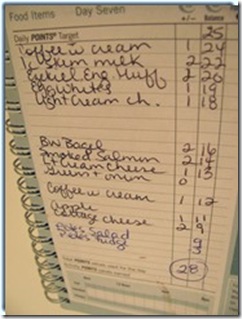 Food Items Day Seven +/- Balance
Daily POINTS Target 25
Coffee w cream 1 24
skim milk 2 22
Ezekiel Eng Muff 2 20
Egg Whites 1 19
Light Cream ch. 1 18
BW Bagel 2 16
Smoked Salmon 2
Lt Cream Cheese 1
Green + onion 0
Coffee w cream 1 12
Apple 1 11
Cottage cheese 2 9
Salad
Fudge
28